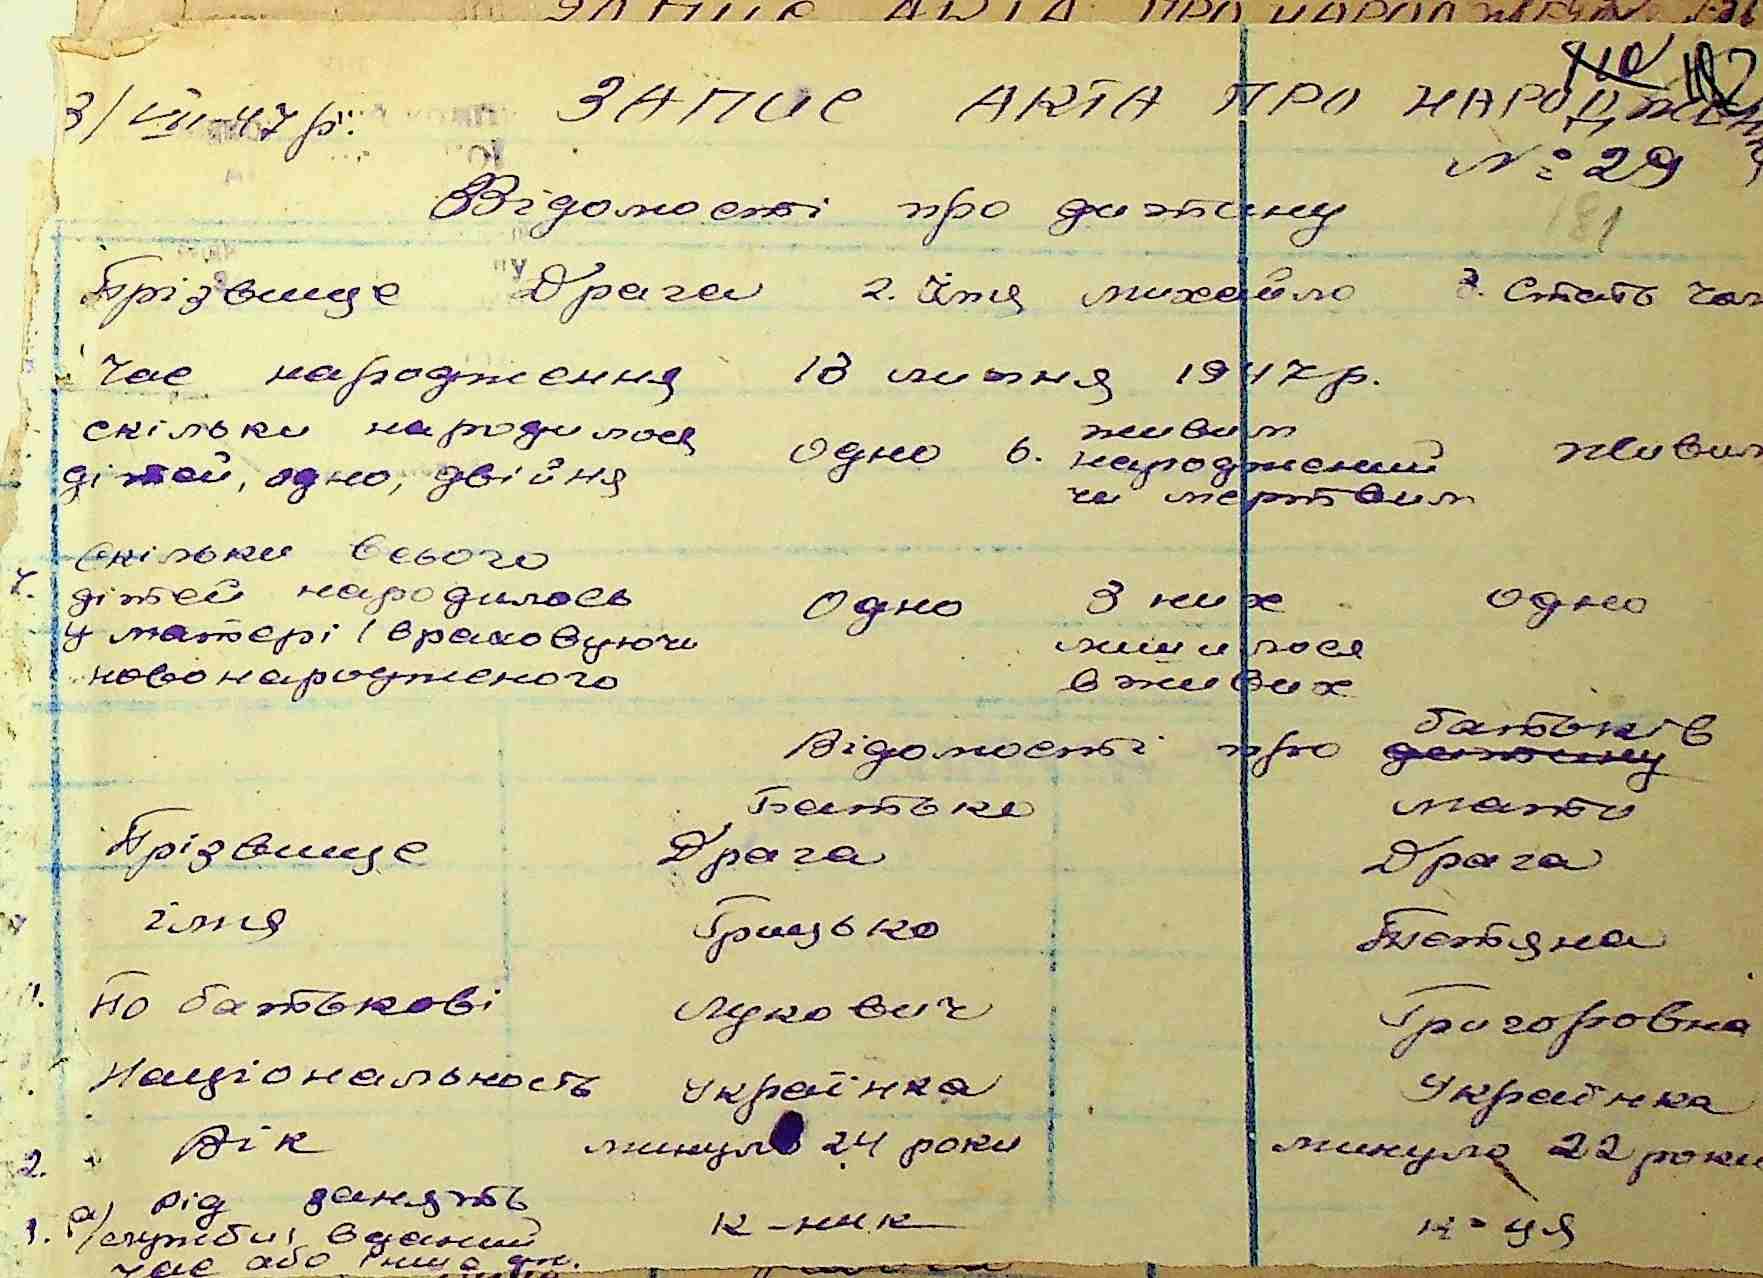 ЗАПИС АКТА ПРО НАРОДЖЕН
3/VIII-47р. ЗАПИС АКТА ПРО НАРОДЖЕННЯ
№ 29
181
Відомості про дитину
Прізвище Драга 2. Імя михайло 3. Стать чол
Час народження 13 липня 1947р.
скільки народилося
дітей, одно, двійня одно 6. живим народжений чи мертвим живим
7. Скільки всього
дітей народилось
у матері (враховуючи
новонародженого одно З них лишилося в живих одно
Відомості про батьків дитину
Батько мати
Прізвище Драга Драга
імя Грицько Тетяна
По батькові Лукович Григоровна
Національность Українка Українка
2. Вік минуло 24 роки минуло 22 роки
а/ рід занять к-ник к-ця
/служби/ в даний
час або інше дж.